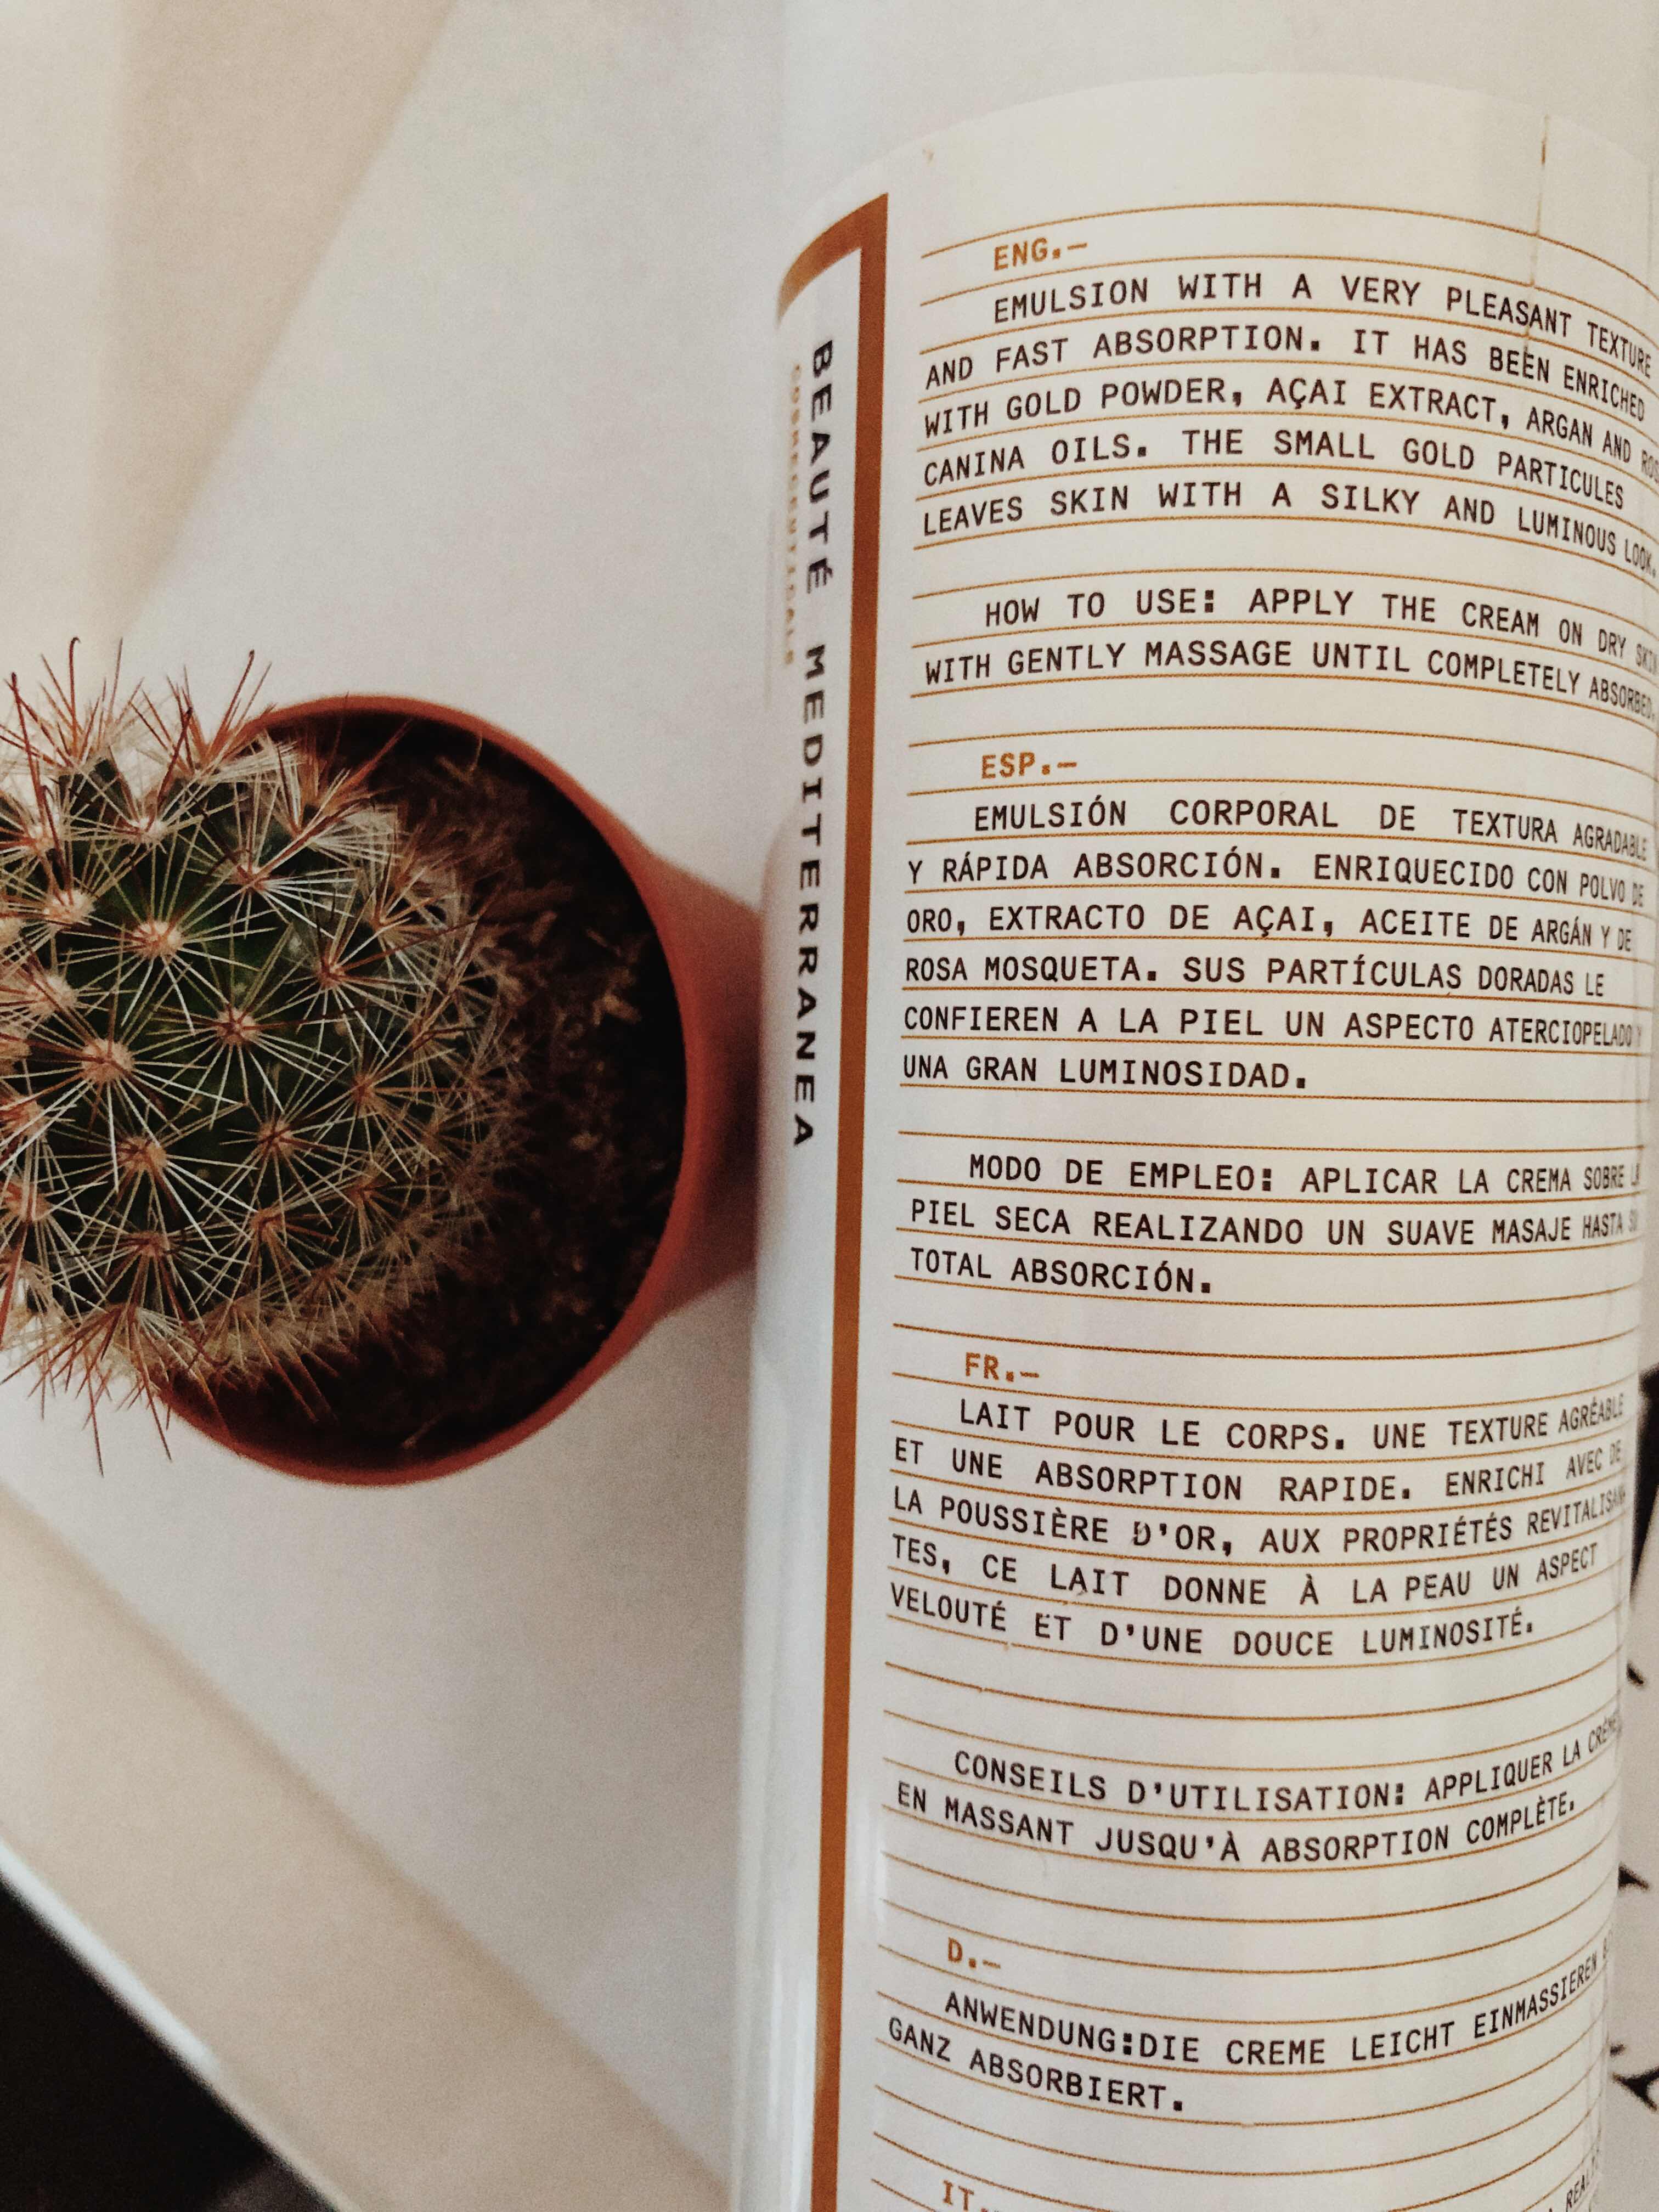 BEAUTÉ MEDITERRANEA
COSMECEUTICALS
ENG.–
EMULSION WITH A VERY PLEASANT TEXTURE
AND FAST ABSORPTION. IT HAS BEEN ENRICHED
WITH GOLD POWDER, AÇAI EXTRACT, ARGAN AND
CANINA OILS. THE SMALL GOLD PARTICULES
LEAVES SKIN WITH A SILKY AND LUMINOUS LOOK.
HOW TO USE: APPLY THE CREAM ON DRY SKIN
WITH GENTLY MASSAGE UNTIL COMPLETELY ABSORBED.
ESP.–
EMULSIÓN CORPORAL DE TEXTURA AGRADABLE
Y RÁPIDA ABSORCIÓN. ENRIQUECIDO CON POLVO DE
ORO, EXTRACTO DE AÇAI, ACEITE DE ARGÁN Y DE
ROSA MOSQUETA. SUS PARTÍCULAS DORADAS LE
CONFIEREN A LA PIEL UN ASPECTO ATERCIOPELADO Y
UNA GRAN LUMINOSIDAD.
MODO DE EMPLEO: APLICAR LA CREMA SOBRE LA
PIEL SECA REALIZANDO UN SUAVE MASAJE HASTA SU
TOTAL ABSORCIÓN.
FR.–
LAIT POUR LE CORPS. UNE TEXTURE AGRÉABLE
ET UNE ABSORPTION RAPIDE. ENRICHI AVEC DE
LA POUSSIÈRE D'OR, AUX PROPRIÉTÉS REVITALISAN
TES, CE LAIT DONNE À LA PEAU UN ASPECT
VELOUTÉ ET D'UNE DOUCE LUMINOSITÉ.
CONSEILS D'UTILISATION: APPLIQUER LA CRÉME
EN MASSANT JUSQU'À ABSORPTION COMPLÈTE.
D.–
ANWENDUNG:DIE CREME LEICHT EINMASSIEREN
GANZ ABSORBIERT.
IT.